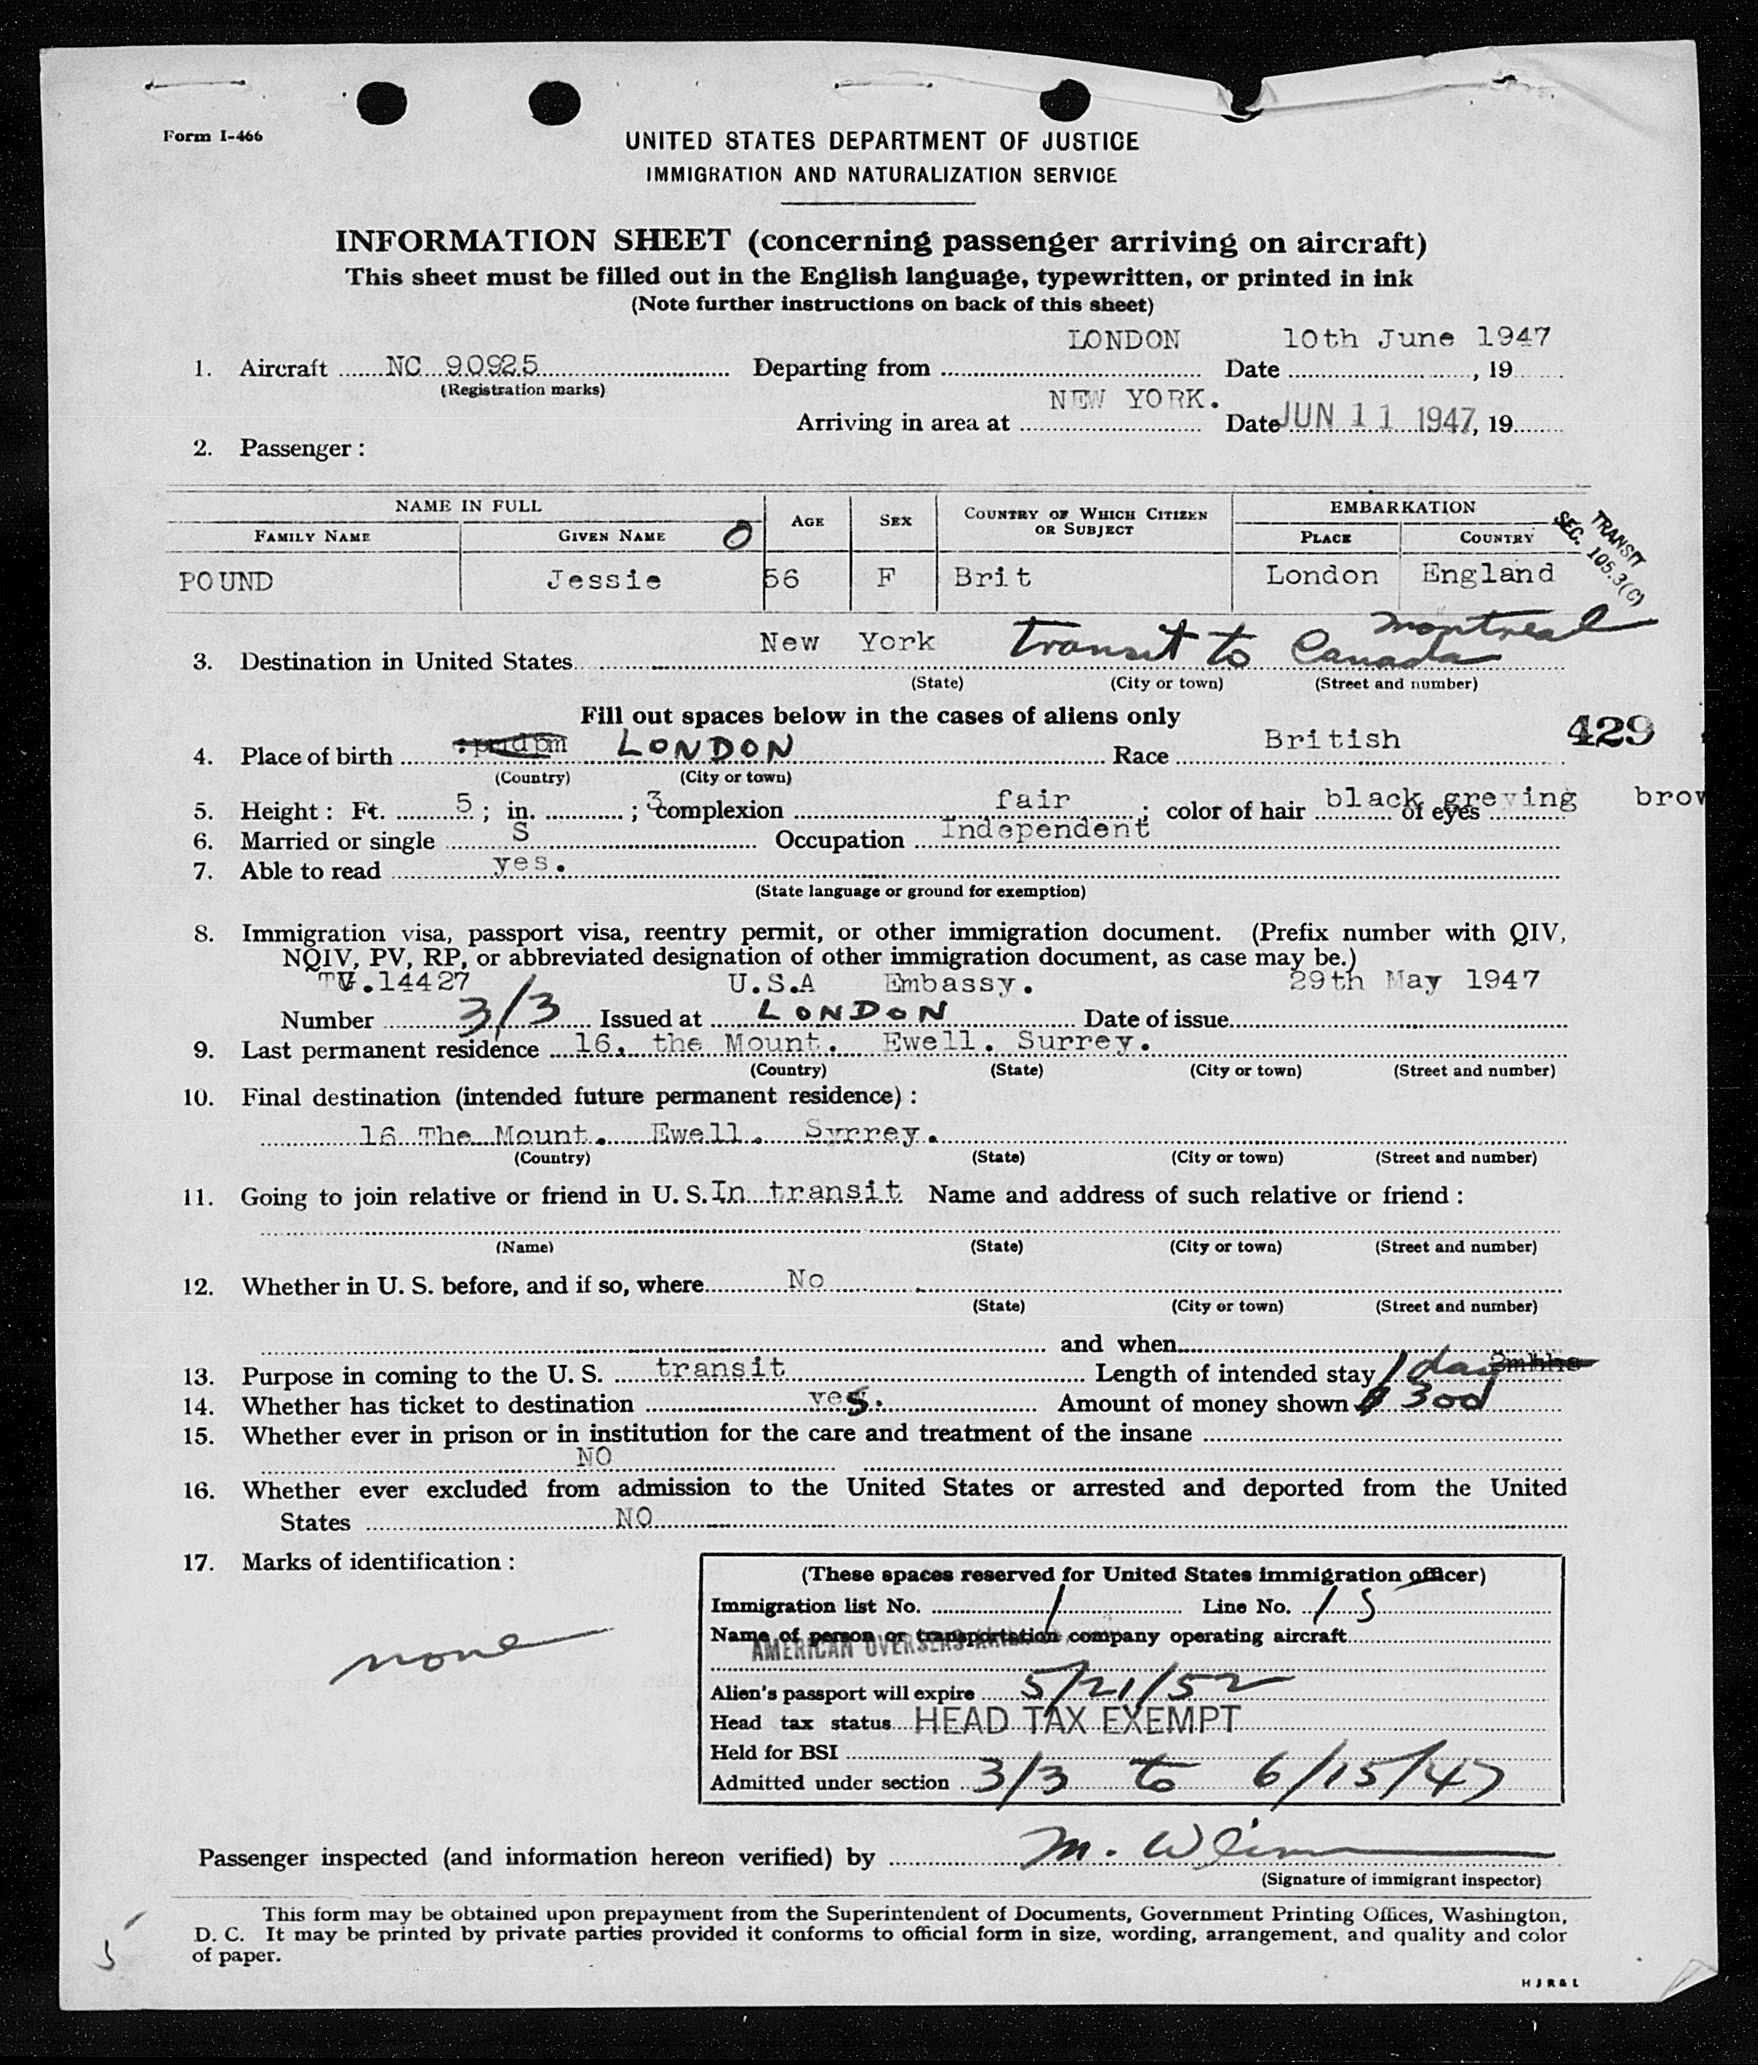 Form I-466
UNITED STATES DEPARTMENT OF JUSTICE
IMMIGRATION AND NATURALIZATION SERVICE
INFORMATION SHEET (concerning passenger arriving on aircraft)
This sheet must be filled out in the English language, typewritten, or printed in ink
(Note further instructions on back of this sheet)
LONDON 10th June 1947
1. Aircraft NC 90925 Departing from Date , 19
(Registration marks)
NEW YORK.
Arriving in area at Date JUN 11 1947, 19
2. Passenger :
NAME IN FULL AGE SEX COUNTRY OF WHICH CITIZEN OR SUBJECT EMBARKATION
FAMILY NAME GIVEN NAME O PLACE COUNTRY
TRANSIT
SEC. 105.3(C)
POUND Jessie 56 F Brit London England
montreal
New York transit to Canada
3. Destination in United States
(State) (City or town) (Street and number)
Fill out spaces below in the cases of aliens only
429
4. Place of birth LONDON Race British
(Country) (City or town)
5. Height : Ft. 5 ; in. ; 3 complexion fair ; color of hair black greying of eyes brow
6. Married or single S Occupation Independent
7. Able to read yes.
(State language or ground for exemption)
8. Immigration visa, passport visa, reentry permit, or other immigration document. (Prefix number with QIV,
NQIV, PV, RP, or abbreviated designation of other immigration document, as case may be.)
TV.14427 U.S.A Embassy. 29th May 1947
Number 3/3 Issued at LONDON Date of issue
9. Last permanent residence 16, the Mount. Ewell. Surrey.
(Country) (State) (City or town) (Street and number)
10. Final destination (intended future permanent residence) :
16 The Mount. Ewell. Syrrey.
(Country) (State) (City or town) (Street and number)
11. Going to join relative or friend in U. S. In transit Name and address of such relative or friend :
(Name) (State) (City or town) (Street and number)
12. Whether in U. S. before, and if so, where No
(State) (City or town) (Street and number)
and when
13. Purpose in coming to the U. S. transit Length of intended stay 1 day
14. Whether has ticket to destination yes. Amount of money shown $ 300
15. Whether ever in prison or in institution for the care and treatment of the insane
NO
16. Whether ever excluded from admission to the United States or arrested and deported from the United
States NO
17. Marks of identification :
none
(These spaces reserved for United States immigration officer)
Immigration list No. 1 Line No. 15
Name of person or transportation company operating aircraft
AMERICAN OVERSEAS
Alien's passport will expire 5/21/52
Head tax status HEAD TAX EXEMPT
Held for BSI
Admitted under section 3/3 to 6/15/47
Passenger inspected (and information hereon verified) by M.
(Signature of immigrant inspector)
This form may be obtained upon prepayment from the Superintendent of Documents, Government Printing Offices, Washington,
D. C. It may be printed by private parties provided it conforms to official form in size, wording, arrangement, and quality and color
of paper.
H J R & L